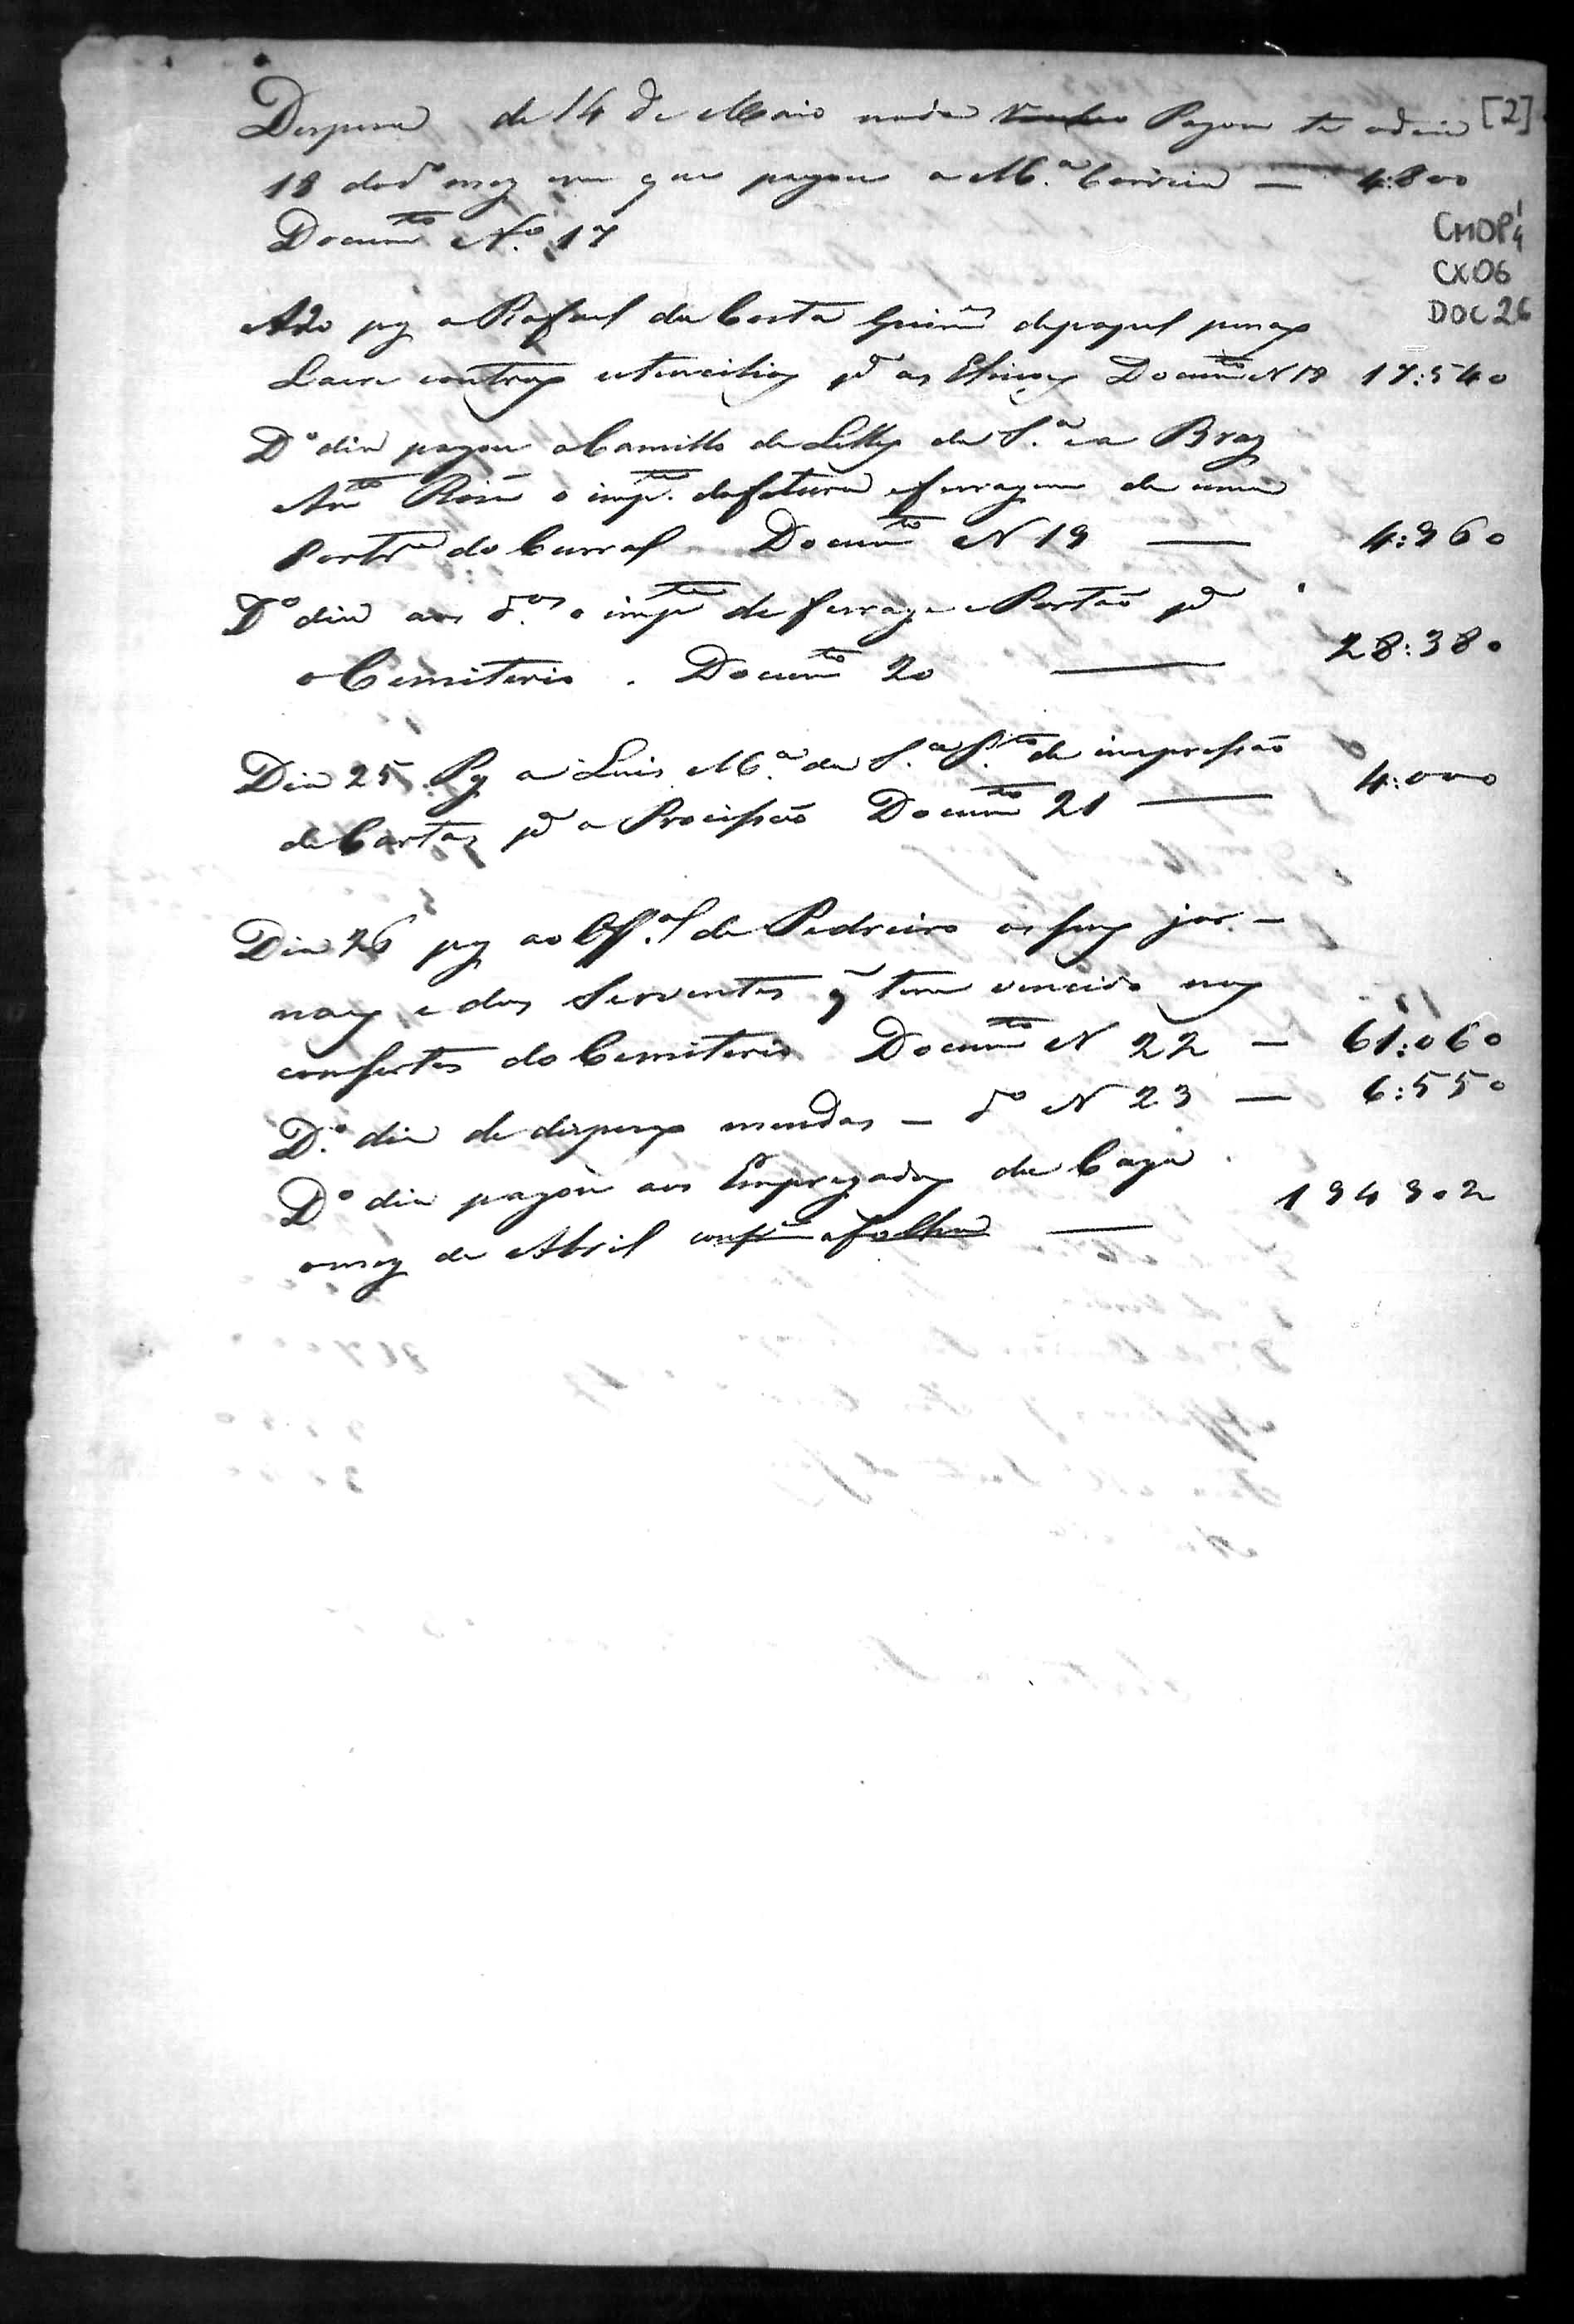 Despesa de 14 de Maio nada Pagou te odia [2]
18 dod.º mez em que pagou a M.ª Correia — 4:800
Docum.to N.º 17
CMOP
CX06
DOC 26
pg a Rafael da Costa Guim.es depapel penas
Lacre eoutros utencilios p.ª as Eleicoes Docum.to N 18 17:540
D.º dia pagou a Camillo de Lellis da S.ª e a Braz
Ant.º o imp.te dafetura eferragem de uma
Port.ra do Curral Docum.to N 19 — 4:960
D.º dia aos d.os o imp.te de ferrage e Portaõ p.ª
o Cemiterio . Docum.to 20 — 28:380
Dia 25 Pg a Luis M.ª da S.ª P.to de impressaõ
de Cartas p.ª a Procissaõ Docum.to 21 — 4:000
Dia 26 pg ao Off.al de Pedreiro os seus jor-
naes e dos Serventes q̃ tem vencido nos
consertos do Cemiterio Docum.to N 22 — 61:060
D.º dia de despezas meudas — d.º N 23 — 6:550
D.º dia pagou aos Empregados da Caza
omez de Abril conf.e afolha — 194902